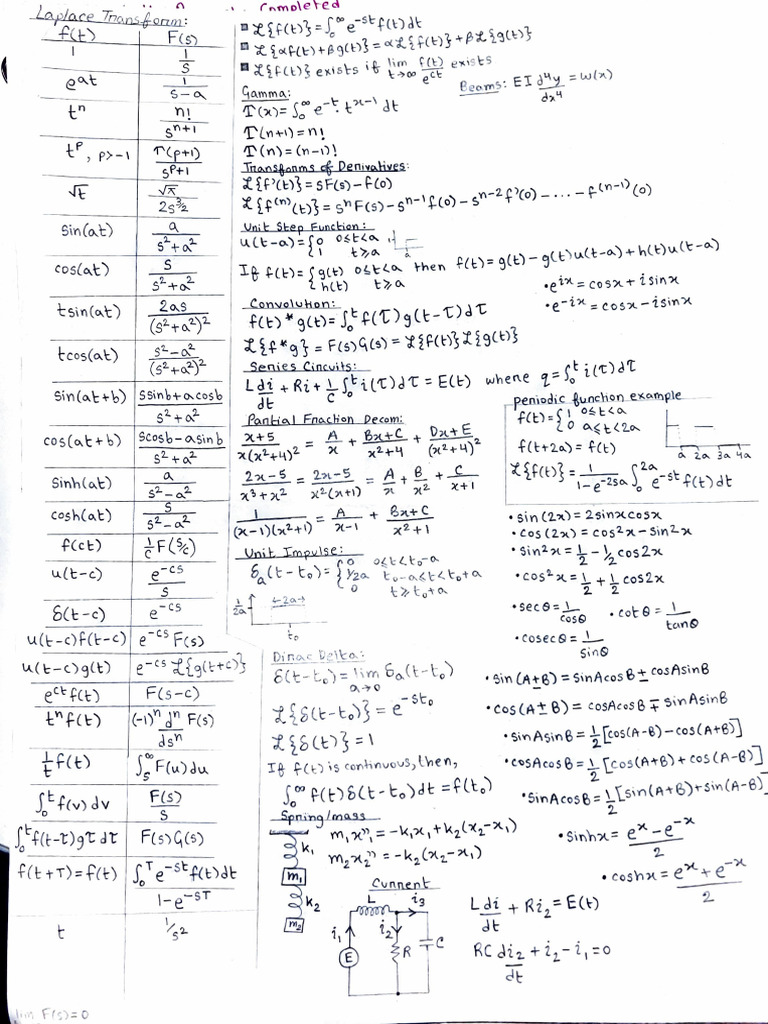 Completed
Laplace Transform:
f(t) F(s)
1 1/s
e^at 1/(s-a)
t^n n!/s^(n+1)
t^p, p>-1 Γ(p+1)/s^(p+1)
√t √π/2s^(3/2)
sin(at) a/(s²+a²)
cos(at) s/(s²+a²)
tsin(at) 2as/(s²+a²)²
tcos(at) (s²-a²)/(s²+a²)²
sin(at+b) (ssinb+acosb)/(s²+a²)
cos(at+b) (scosb-asinb)/(s²+a²)
sinh(at) a/(s²-a²)
cosh(at) s/(s²-a²)
f(ct) 1/c F(s/c)
u(t-c) e^-cs/s
δ(t-c) e^-cs
u(t-c)f(t-c) e^-cs F(s)
u(t-c)g(t) e^-cs ℒ{g(t+c)}
e^ct f(t) F(s-c)
t^n f(t) (-1)^n d^n/ds^n F(s)
1/t f(t) ∫_s^∞ F(u)du
∫_0^t f(v)dv F(s)/s
∫_0^t f(t-τ)gτ dτ F(s)G(s)
f(t+T)=f(t) ∫_0^T e^-st f(t)dt/(1-e^-sT)
t 1/s²
F(s)=0
▪ ℒ{f(t)}=∫_0^∞ e^-st f(t)dt
▪ ℒ{αf(t)+βg(t)}=αℒ{f(t)}+βℒ{g(t)}
▪ ℒ{f(t)} exists if lim t→∞ f(t)/e^ct exists
Beams: EI d⁴y/dx⁴ = w(x)
Gamma:
Γ(x)=∫_0^∞ e^-t · t^(x-1) dt
Γ(n+1)=n!
Γ(n)=(n-1)!
Transforms of Derivatives:
ℒ{f'(t)}=sF(s)-f(0)
ℒ{f^(n)(t)}=s^n F(s)-s^(n-1) f(0)-s^(n-2) f'(0)-....-f^(n-1)(0)
Unit Step Function:
u(t-a)={0 0≤t<a
1 t≥a
a
If f(t)={g(t) 0≤t<a then f(t)=g(t)-g(t)u(t-a)+h(t)u(t-a)
h(t) t≥a
•e^ix=cosx+isinx
•e^-ix=cosx-isinx
Convolution:
f(t)*g(t)=∫_0^t f(τ)g(t-τ)dτ
ℒ{f*g}=F(s)G(s)=ℒ{f(t)}ℒ{g(t)}
Series Circuits:
L di/dt + Ri + 1/c ∫_0^t i(τ)dτ = E(t) where q=∫_0^t i(τ)dτ
Partial Fraction Decom:
(x+5)/(x(x²+4)²) = A/x + (Bx+C)/(x²+4) + (Dx+E)/(x²+4)²
(2x-5)/(x³+x²) = (2x-5)/(x²(x+1)) = A/x + B/x² + C/(x+1)
1/((x-1)(x²+1)) = A/(x-1) + (Bx+C)/(x²+1)
periodic function example
f(t)={1 0≤t<a
0 a≤t<2a
f(t+2a)=f(t)
a 2a 3a 4a
ℒ{f(t)}=1/(1-e^-2sa) ∫_0^2a e^-st f(t)dt
Unit Impulse:
δ_a(t-t₀)={0 0≤t<t₀-a
1/2a t₀-a≤t<t₀+a
0 t≥t₀+a
1/2a ←2a→
t₀
Dirac Delta:
δ(t-t₀)=lim a→0 δ_a(t-t₀)
ℒ{δ(t-t₀)}=e^-st₀
ℒ{δ(t)}=1
If f(t) is continuous, then,
∫_0^∞ f(t)δ(t-t₀)dt=f(t₀)
•sin(2x)=2sinxcosx
•cos(2x)=cos²x-sin²x
•sin²x=1/2-1/2cos2x
•cos²x=1/2+1/2cos2x
•secθ=1/cosθ •cotθ=1/tanθ
•cosecθ=1/sinθ
•sin(A±B)=sinAcosB±cosAsinB
•cos(A±B)=cosAcosB∓sinAsinB
•sinAsinB=1/2[cos(A-B)-cos(A+B)]
•cosAcosB=1/2[cos(A+B)+cos(A-B)]
•sinAcosB=1/2[sin(A+B)+sin(A-B)]
•sinhx=(e^x-e^-x)/2
•coshx=(e^x+e^-x)/2
Spring/mass
k₁
m₁
k₂
m₂
m₁x₁"=-k₁x₁+k₂(x₂-x₁)
m₂x₂"=-k₂(x₂-x₁)
Current
L i₃
i₁ i₂
E R C
L di/dt + Ri₂=E(t)
RC di₂/dt + i₂-i₁=0